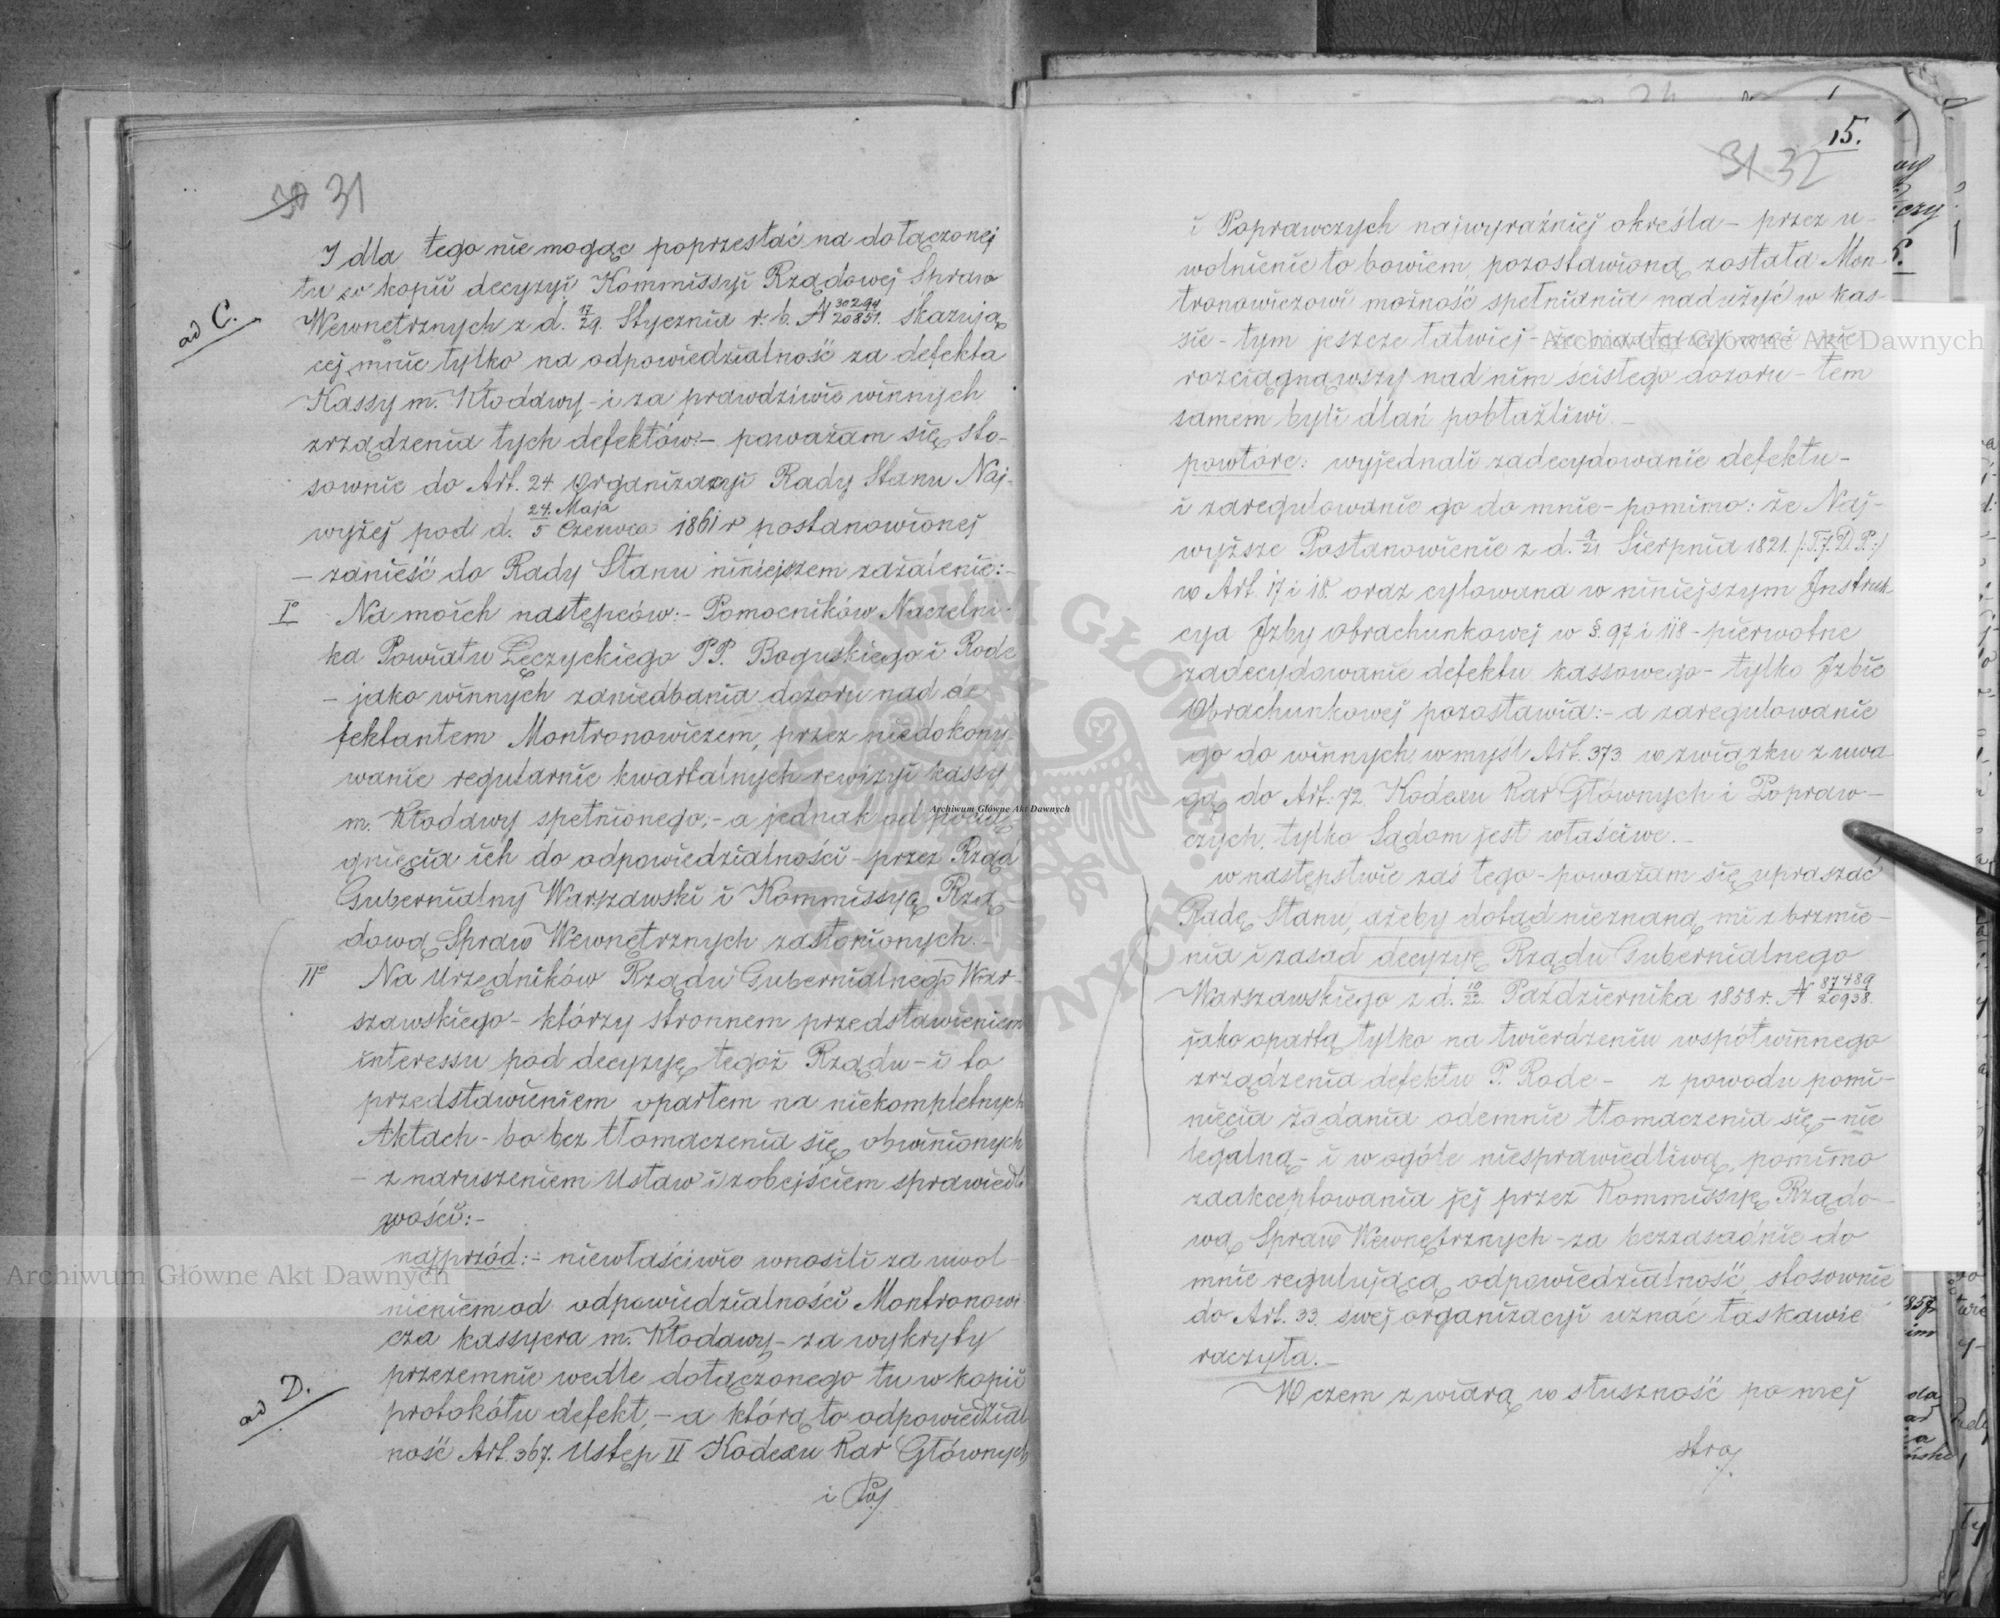 30 31
I dla tego nie mogąc poprzestać na dołączonej
tu w kopii decyzyi Kommissyi Rządowej Spraw
ad C.
Wewnętrznych z d. 17/29. Stycznia r. b. N 30294/20851. skazują
cej mnie tylko na odpowiedzialność za defekta
Kassy m. Kłodawy - i za prawdziwie winnych
zrządzenia tych defektów: - poważam się sto-
sownie do Art. 24 Organizacyi Rady Stanu Naj-
wyżej pod d. 24. Maja/5 Czerwca 1861 r postanowionej
- zanieść do Rady Stanu niniejszem zażalenie: -
Iº Na moich następców: - Pomocników Naczelni-
ka Powiatu Łęczyckiego PP. Boguskiego i Rode
- jako winnych zaniedbania dozoru nad de
fektantem Montronowiczem, przez niedokony-
wanie regularnie kwartalnych rewizyi kassy
m. Kłodawy spełnionego, - a jednak od pocią
gnięcia ich do odpowiedzialności - przez Rząd
Gubernialny Warszawski i Kommissyą Rzą
dową Spraw Wewnętrznych zasłonionych. -
IIº Na Urzędników Rządu Gubernialnego War-
szawskiego - którzy stronnem przedstawieniem
interessu pod decyzyę tegoż Rządu - i to
przedstawieniem opartem na niekompletnych
Aktach - bo bez tłomaczenia się obwinionych
- z naruszeniem Ustaw i z obejściem sprawiedli
wości: -
najprzód: - niewłaściwie wnosili za uwol-
nieniem od odpowiedzialności Montronowi
cza kassyera m. Kłodawy - za wykryty
ad D.
przezemnie wedle dołączonego tu w kopii
protokółu defekt, - a którą to odpowiedzial
ność Art. 367. Ustęp II Kodexu Kar Głównych
i Po/
15.
31 32
i Poprawczych najwyraźniej określa - przez u-
wolnienie to bowiem, pozostawioną została Mon-
tronowiczowi możność spełniania nadużyć w kas-
sie - tym jeszcze łatwiej - że następcy moi nie
rozciągnąwszy nad nim ścisłego dozoru - tem
samem byli dlań pobłażliwi. -
powtóre: wyjednali zadecydowanie defektu -
i zaregulowanie go do mnie - pomimo: że Naj-
wyższe Postanowienie z d. 9/21 Sierpnia 1821. /: T.7. D.P. :/
w Art. 17 i 18. oraz cytowana w niniejszym Instruk-
cya Izby Obrachunkowej w §. 97 i 118 - pierwotne
zadecydowanie defektu kassowego - tylko Izbie
Obrachunkowej pozostawia: - a zaregulowanie
go do winnych w myśl Art. 373. w związku z uwa
gą do Art: 72. Kodexu Kar Głównych i Popraw-
czych, tylko Sądom jest właściwe. -
w następstwie zaś tego - poważam się upraszać
Radę Stanu, ażeby dotąd nieznaną mi z brzmie-
nia i zasad decyzyę Rządu Gubernialnego
Warszawskiego z d. 10/22. Października 1858 r. N 87489/20938.
jako opartą tylko na twierdzeniu współwinnego
zrządzenia defektu P. Rode - z powodu pomi-
nięcia żądania odemnie tłomaczenia się - nie
legalną - i w ogóle niesprawiedliwą, pomimo
zaakceptowania jej przez Kommissyę Rządo-
wą Spraw Wewnętrznych - za bezzasadnie do
mnie regulującą odpowiedzialność, stosownie
do Art. 33. swej organizacyi uznać łaskawie
raczyła. -
W czem z wiarą w słuszność po niej
stro/
Archiwum Główne Akt Dawnych
Archiwum Główne Akt Dawnych
Archiwum Główne Akt Dawnych
ARCHIWUM GŁÓWNE AKT DAWNYCH